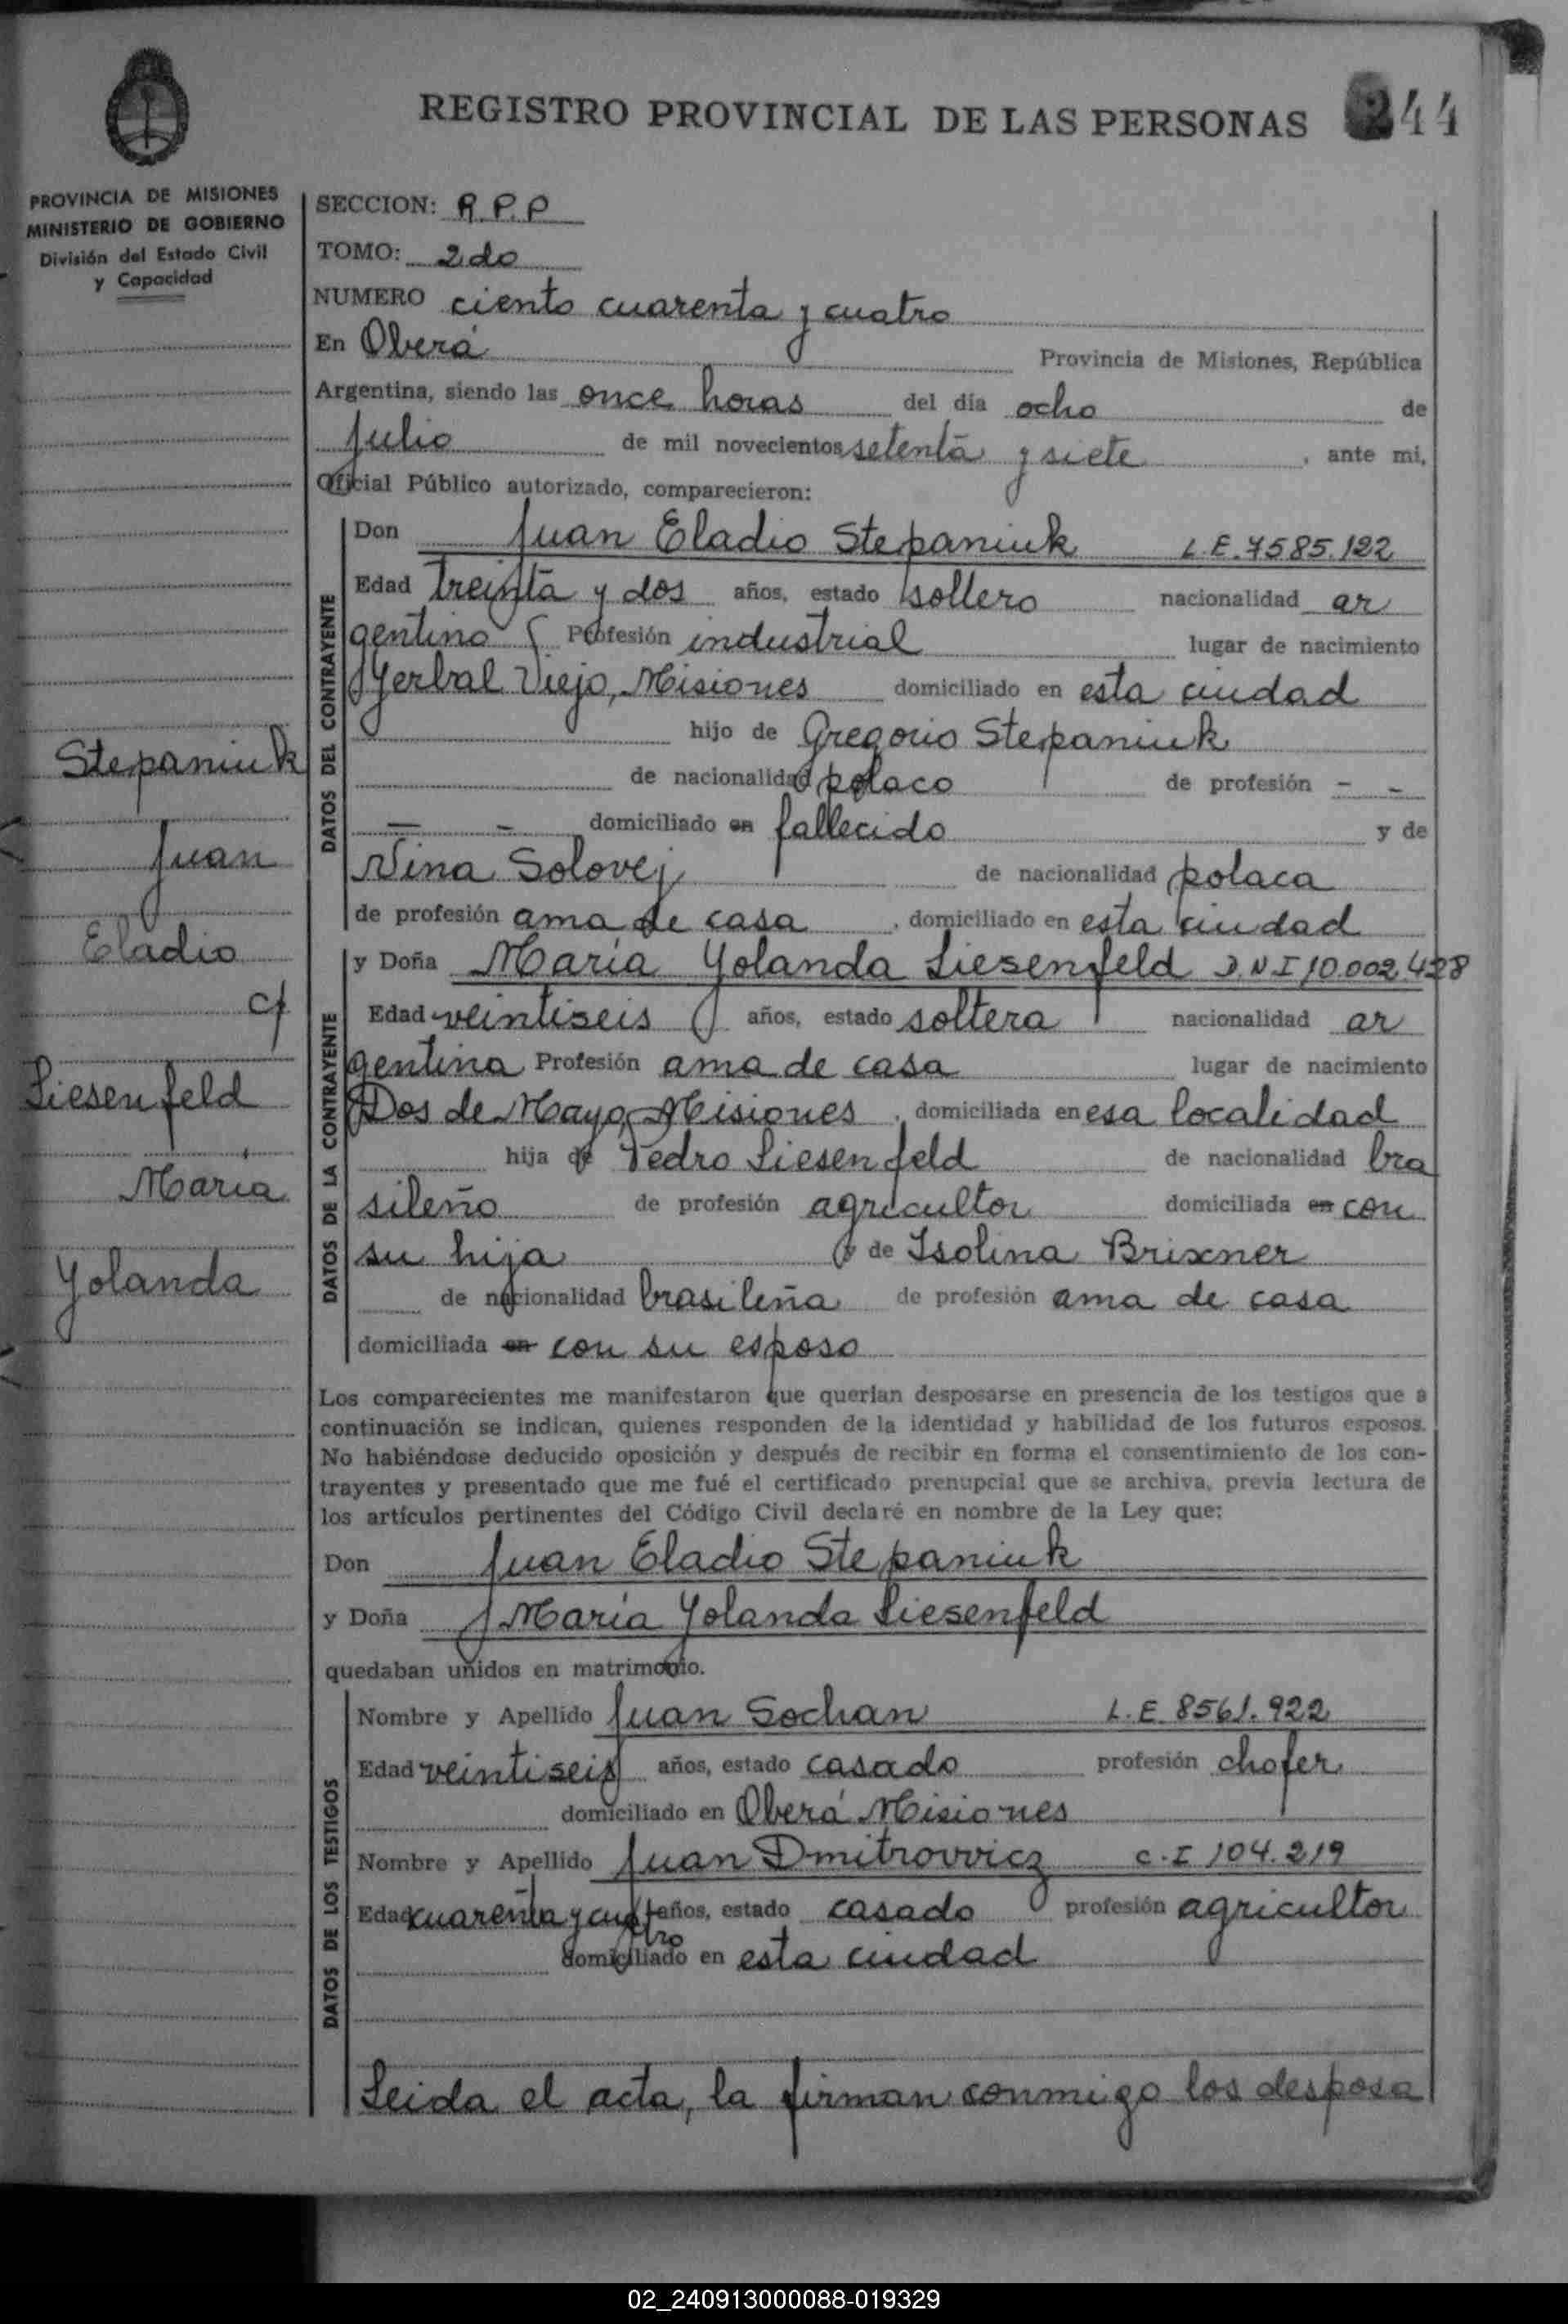 REGISTRO PROVINCIAL DE LAS PERSONAS 244
PROVINCIA DE MISIONES
MINISTERIO DE GOBIERNO
División del Estado Civil
y Capacidad
Stepaniuk
Juan
Eladio
c/
Liesenfeld
María
Yolanda
SECCION: R.P.P
TOMO: 2do
NUMERO ciento cuarenta y cuatro
En Oberá Provincia de Misiones, República
Argentina, siendo las once horas del día ocho de
julio de mil novecientos setenta y siete, ante mi,
Oficial Público autorizado, comparecieron:
DATOS DEL CONTRAYENTE
Don Juan Eladio Stepaniuk L.E. 7585.122
Edad treinta y dos años, estado soltero nacionalidad ar
gentino Profesión industrial lugar de nacimiento
Yerbal Viejo, Misiones domiciliado en esta ciudad
hijo de Gregorio Stepaniuk
de nacionalidad polaco de profesión - -
- - domiciliado en fallecido y de
Nina Solovej de nacionalidad polaca
de profesión ama de casa, domiciliado en esta ciudad
DATOS DE LA CONTRAYENTE
y Doña María Yolanda Liesenfeld D.N.I 10.002.428
Edad veintiseis años, estado soltera nacionalidad ar
gentina Profesión ama de casa lugar de nacimiento
Dos de Mayo, Misiones, domiciliada en esa localidad
hija de Pedro Liesenfeld de nacionalidad bra
sileño de profesión agricultor domiciliada en con
su hija y de Isolina Brixner
de nacionalidad brasileña de profesión ama de casa
domiciliada en con su esposo
Los comparecientes me manifestaron que querían desposarse en presencia de los testigos que a
continuación se indican, quienes responden de la identidad y habilidad de los futuros esposos.
No habiéndose deducido oposición y después de recibir en forma el consentimiento de los con-
trayentes y presentado que me fué el certificado prenupcial que se archiva, previa lectura de
los artículos pertinentes del Código Civil declaré en nombre de la Ley que:
Don Juan Eladio Stepaniuk
y Doña María Yolanda Liesenfeld
quedaban unidos en matrimonio.
DATOS DE LOS TESTIGOS
Nombre y Apellido Juan Sochan L.E. 8561.922
Edad veintiseis años, estado casado profesión chofer
domiciliado en Oberá Misiones
Nombre y Apellido Juan Dmitrowicz C.I 104.219
Edad cuarenta y cuatro años, estado casado profesión agricultor
domiciliado en esta ciudad
Leida el acta, la firman conmigo los desposa
02_240913000088-019329